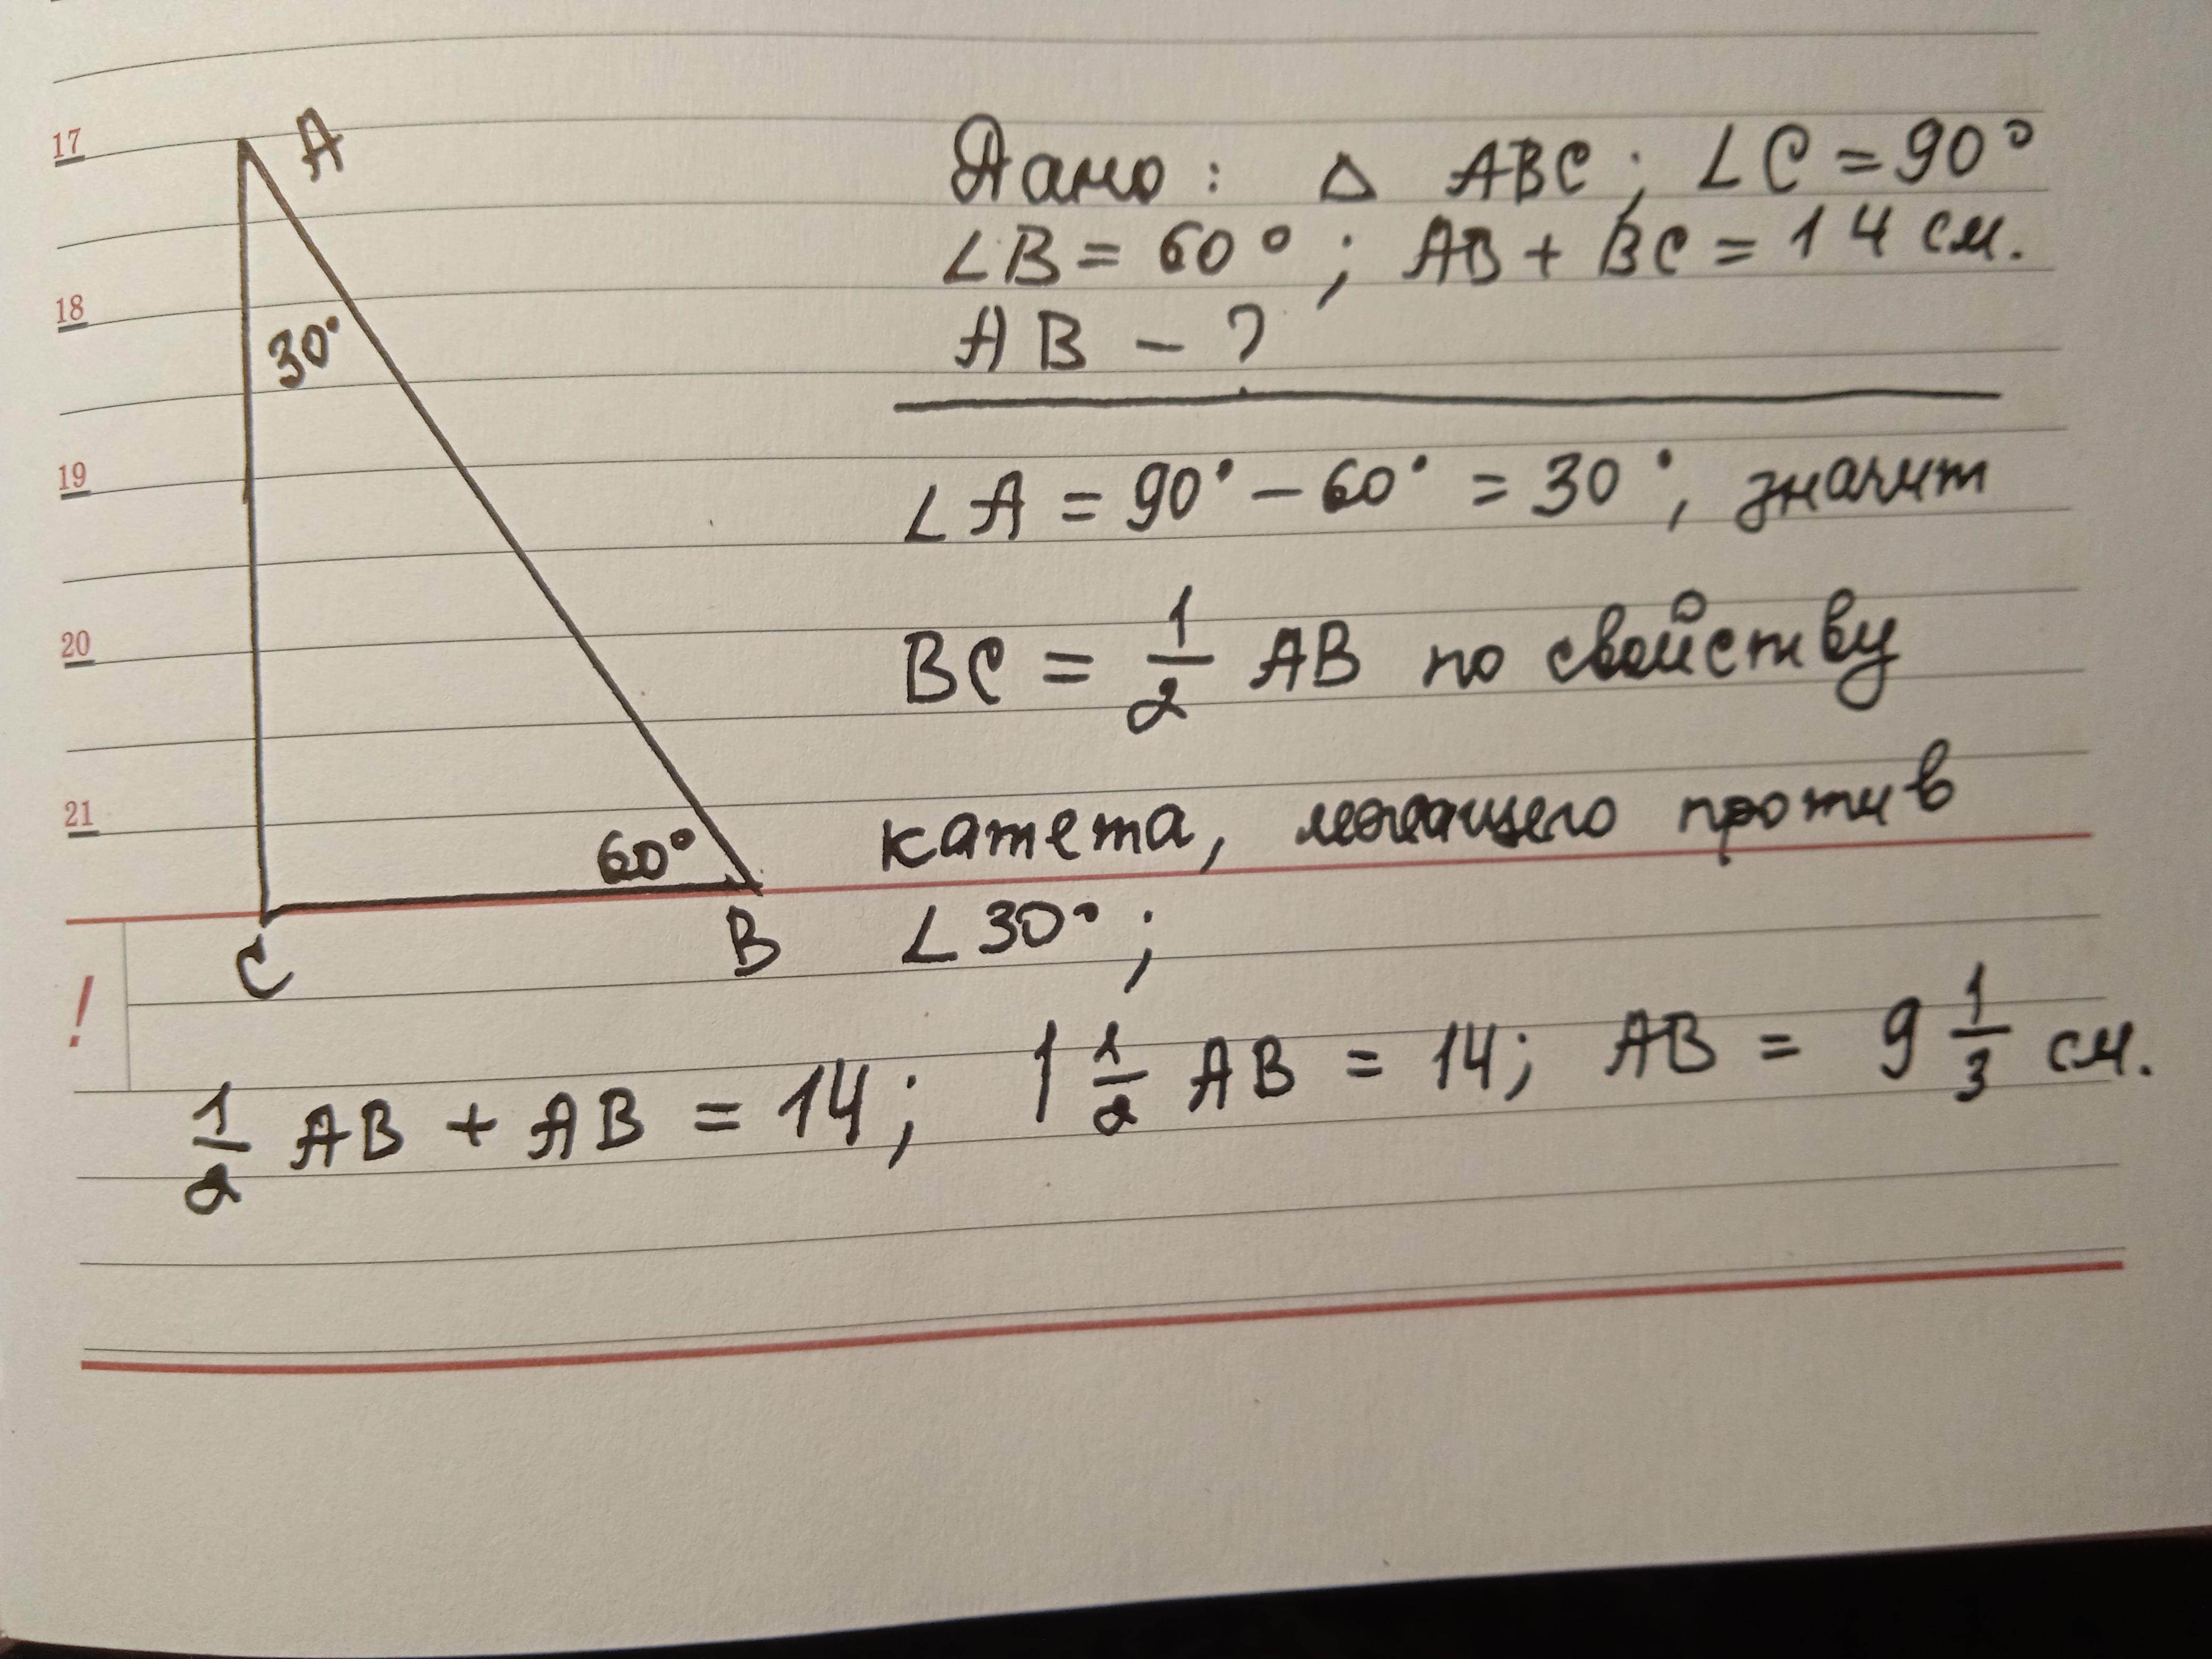 17
18
19
20
21
!
A
30°
60°
C
B
Дано: △ ABC; ∠C = 90°
∠B = 60°; AB + BC = 14 см.
AB – ?
∠A = 90° – 60° = 30°, значит
BC = 1/2 AB по свойству
катета, лежащего против
∠30°;
1/2 AB + AB = 14; 1 1/2 AB = 14; AB = 9 1/3 см.